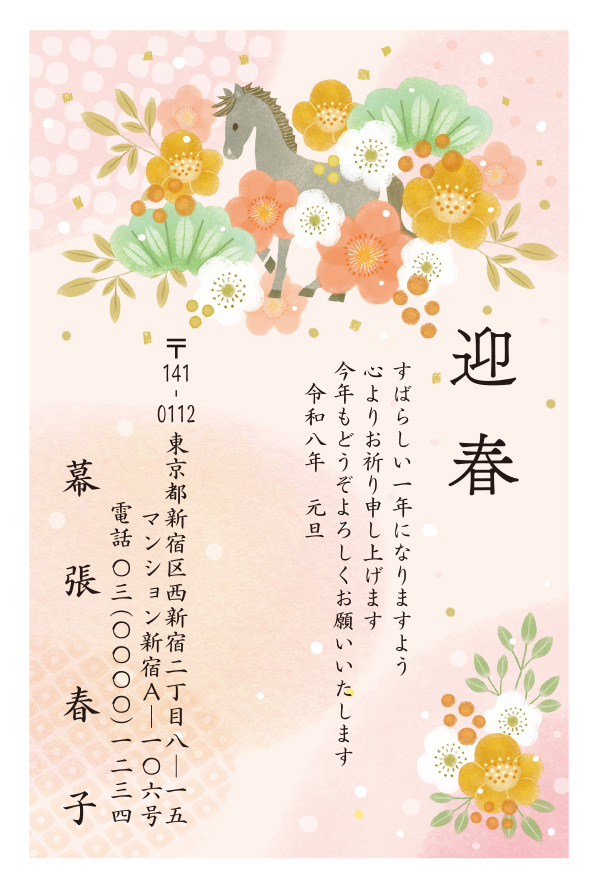 迎春
すばらしい一年になりますよう
心よりお祈り申し上げます
今年もどうぞよろしくお願いいたします
令和八年　元旦
〒141-0112 東京都新宿区西新宿二丁目八―一五
マンション新宿Ａ―一〇六号
電話 〇三(〇〇〇〇)一二三四
幕張春子